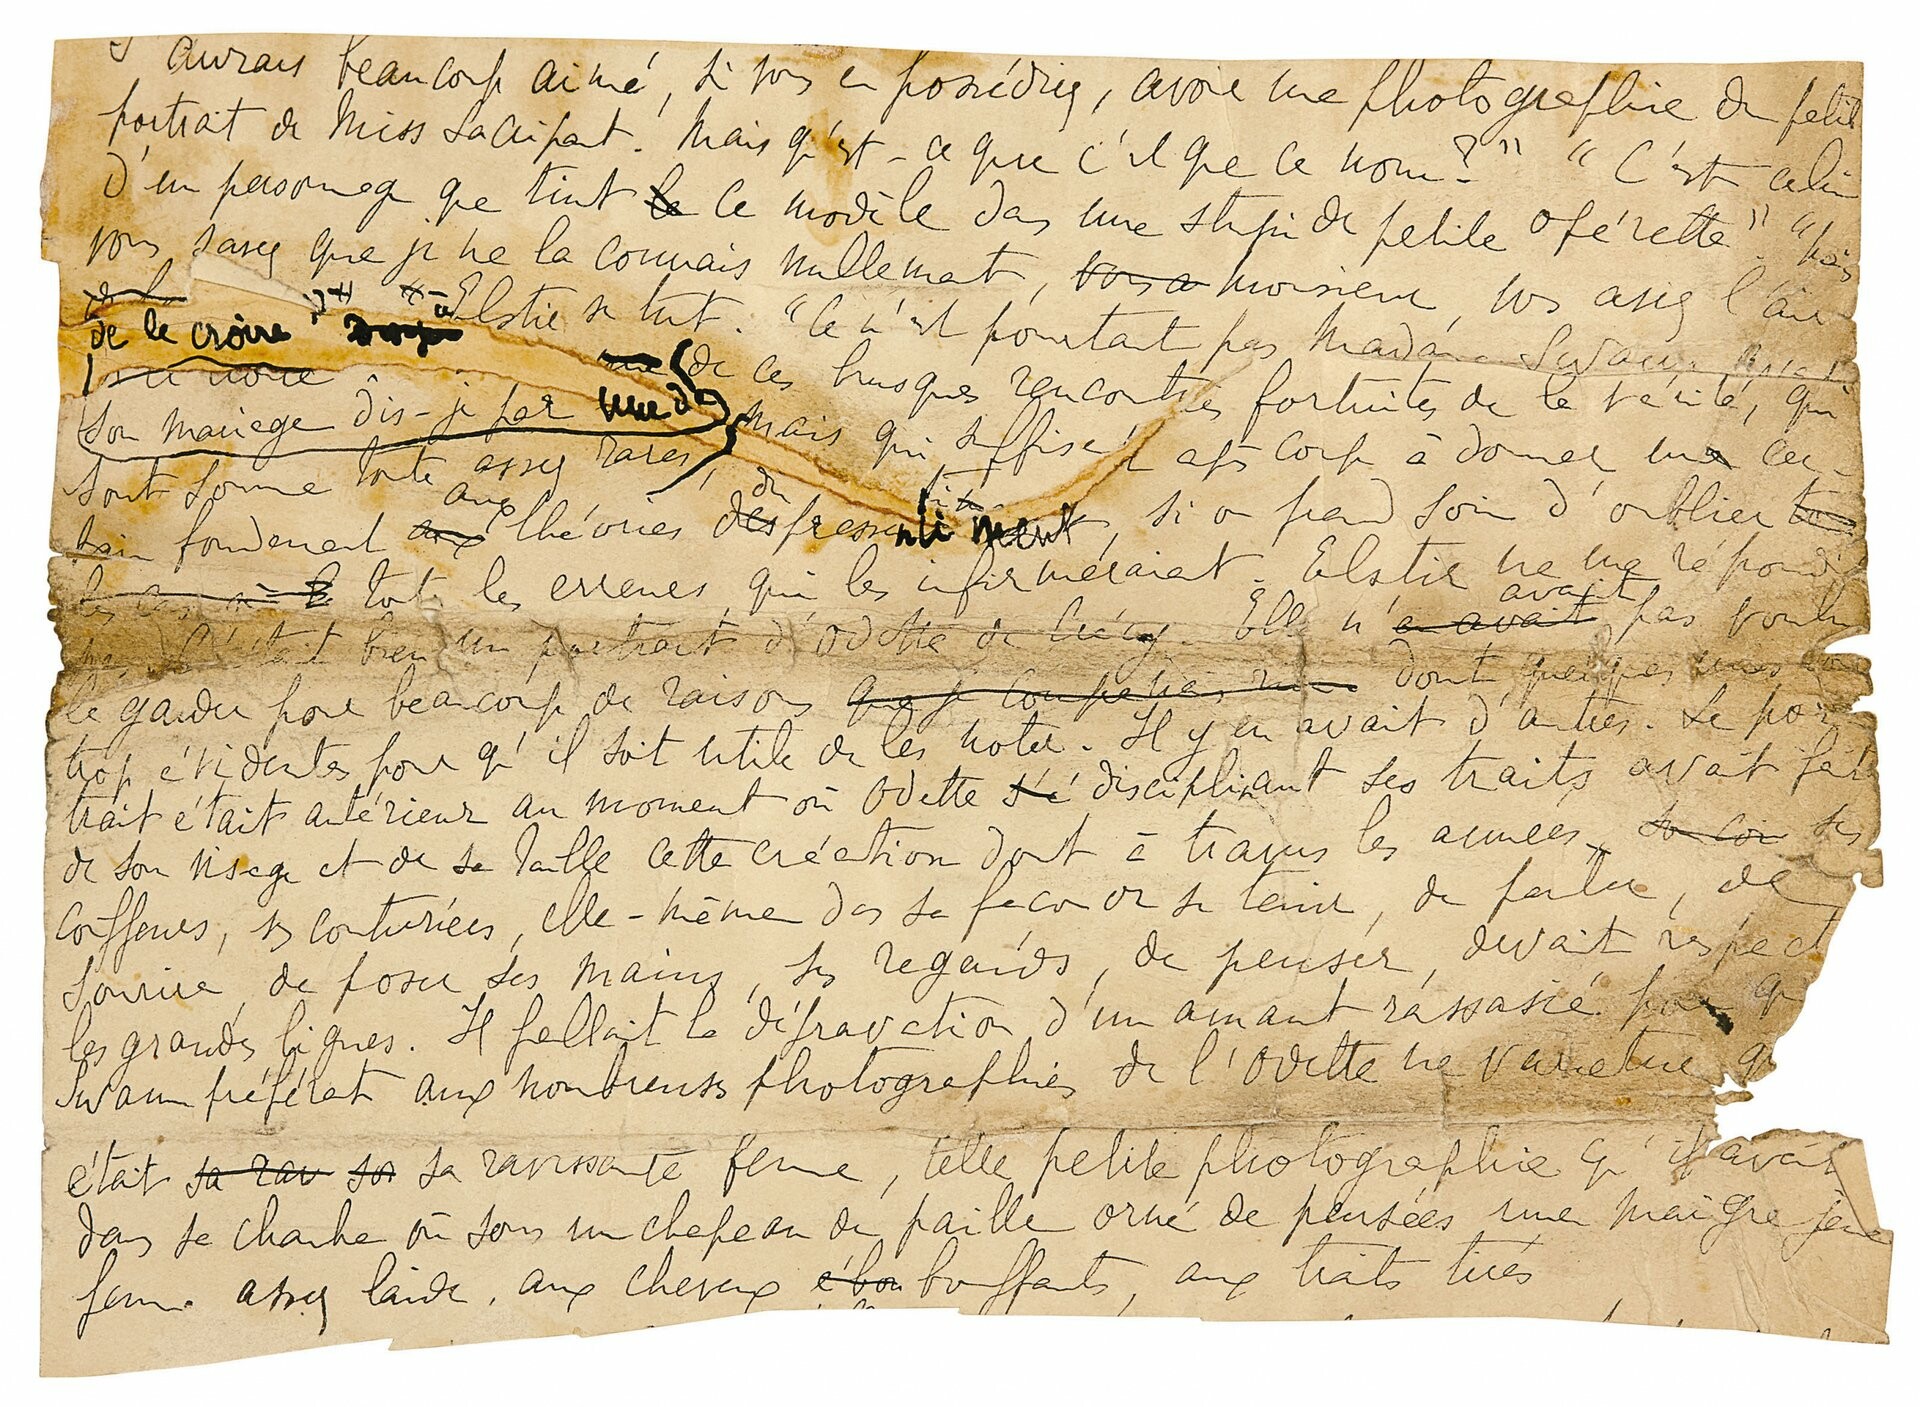 J'aurais beaucoup aimé, si vous en possédiez, avoir une photographie du petit
portrait de Miss Sacripant. Mais qu'est-ce que c'est que ce nom? " " C'est celui
d'un personnage que tint le ce modèle dans une stupide petite opérette" "Mais
vous savez que je ne la connais nullement, vous a monsieur, vous avez l'air
de la
de le croire " Elstir se tut. "Ce n'est pourtant pas Madame Swann avant
son mariage dis-je par une de de ces brusques rencontres fortuites de la vérité, qui
sont somme toute assez rares, mais qui suffisent après coup à donner un cer-
tain fondement aux aux théories des du pressentiment, si on prend soin d'oublier
toutes les erreurs qui les infirmeraient. Elstir ne me répondit
pas. C'était bien un portrait d'Odette de Crécy. Elle n'en avait avait pas voulu
le garder pour beaucoup de raisons dont quelques unes sont
trop évidentes pour qu'il soit utile de les noter. Il y en avait d'autres. Le por-
trait était antérieur au moment où Odette s'é disciplinant ses traits avait fait
de son visage et de sa taille cette création dont à travers les années, ses
coiffeurs, ses couturiers, elle-même dans sa façon de se tenir, de parler, de
sourire, de poser ses mains, ses regards, de penser, devait respect
les grandes lignes. Il fallait la dépravation d'un amant rassasié pour q
Swann préférât aux nombreuses photographies de l'Odette ne varietur q
était sa rav sa sa ravissante femme, telle petite photographie qu'il avait
dans sa chambre où sous un chapeau de paille orné de pensées une maigre jeune
femme assez laide, aux cheveux bouffants, aux traits tirés